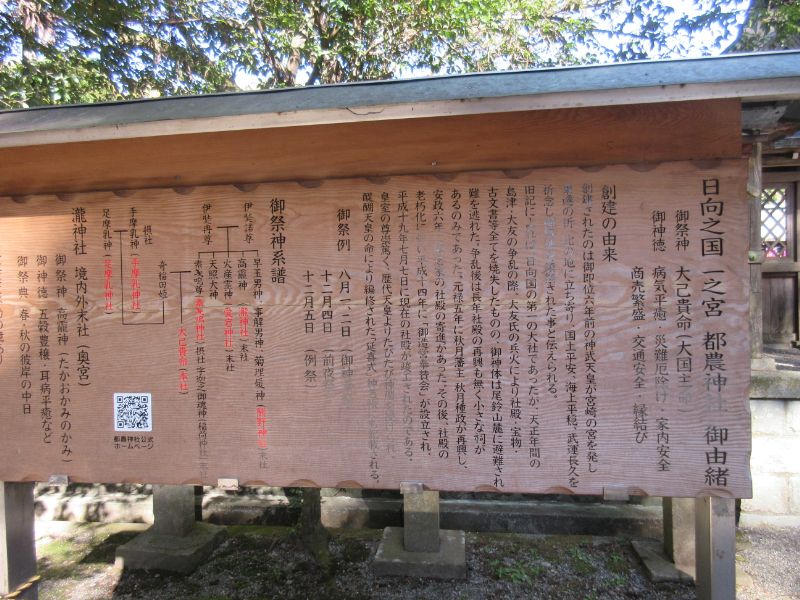 日向之国 一之宮 都農神社 御由緒
御祭神 大己貴命（大国主命）
御神徳 病気平癒・災難厄除け・家内安全
商売繁盛・交通安全・縁結び
創建の由来
創建されたのは御即位六年前の神武天皇が宮崎の宮を発し
東遷の折、此の地に立ち寄り、国土平安、海上平穏、武運長久を
祈念し
された事と伝えられる。
旧記に
日向国の第一の大社であったが、天正年間の
島津・大友の争乱の際、大友氏の兵火により社殿・宝物・
古文書等全てを焼失したものの、御神体は尾鈴山麓に避難され
難を逃れた。争乱後は長年社殿の再興も無く小さな祠が
あるのみであった。元禄五年に秋月藩主・秋月種政が再興し、
安政六年
の社殿の寄進があった。その後、社殿の
老朽化に
平成十四年に「御造営奉賛会」が設立され、
平成十九年七月七日に現在の社殿が竣工されたのである。
皇室の尊崇篤く、歴代天皇よりたびたび
醍醐天皇の命により編修された「延喜式」神
記載される。
御祭例
八月一、二日（
十二月四日（前夜祭）
十二月五日（例祭）
御祭神系譜
伊弉諾尊
伊弉冉尊
早玉男神・事解男神・菊理媛神（熊野神社）末社
高龗神（瀧神社）末社
火産霊神（愛宕神社）末社
天照大神
素盞嗚尊（素盞嗚神社）摂社
宇迦之御魂神（稲荷神社）末社
大己貴命（本社）
奇稲田姫
摂社
手摩乳神（手摩乳神社）
足摩乳神（足摩乳神社）
都農神社公式
ホームページ
瀧神社 境内外末社（奥宮）
御祭神：高龗神（たかおかみのかみ）
御神徳：五穀豊穣・耳病平癒など
御祭典：春・秋の彼岸の中日